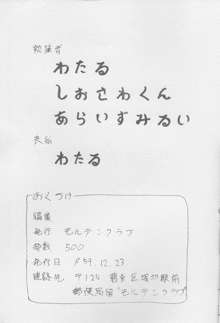 執筆者
わたる
しおさわくん
あらいずみるい
表紙
わたる
おくづけ
編集
発行 モルテンクラブ
部数 500
発行日 S59.12.23
連絡先 〒124
郵便局留"モルテンクラブ"